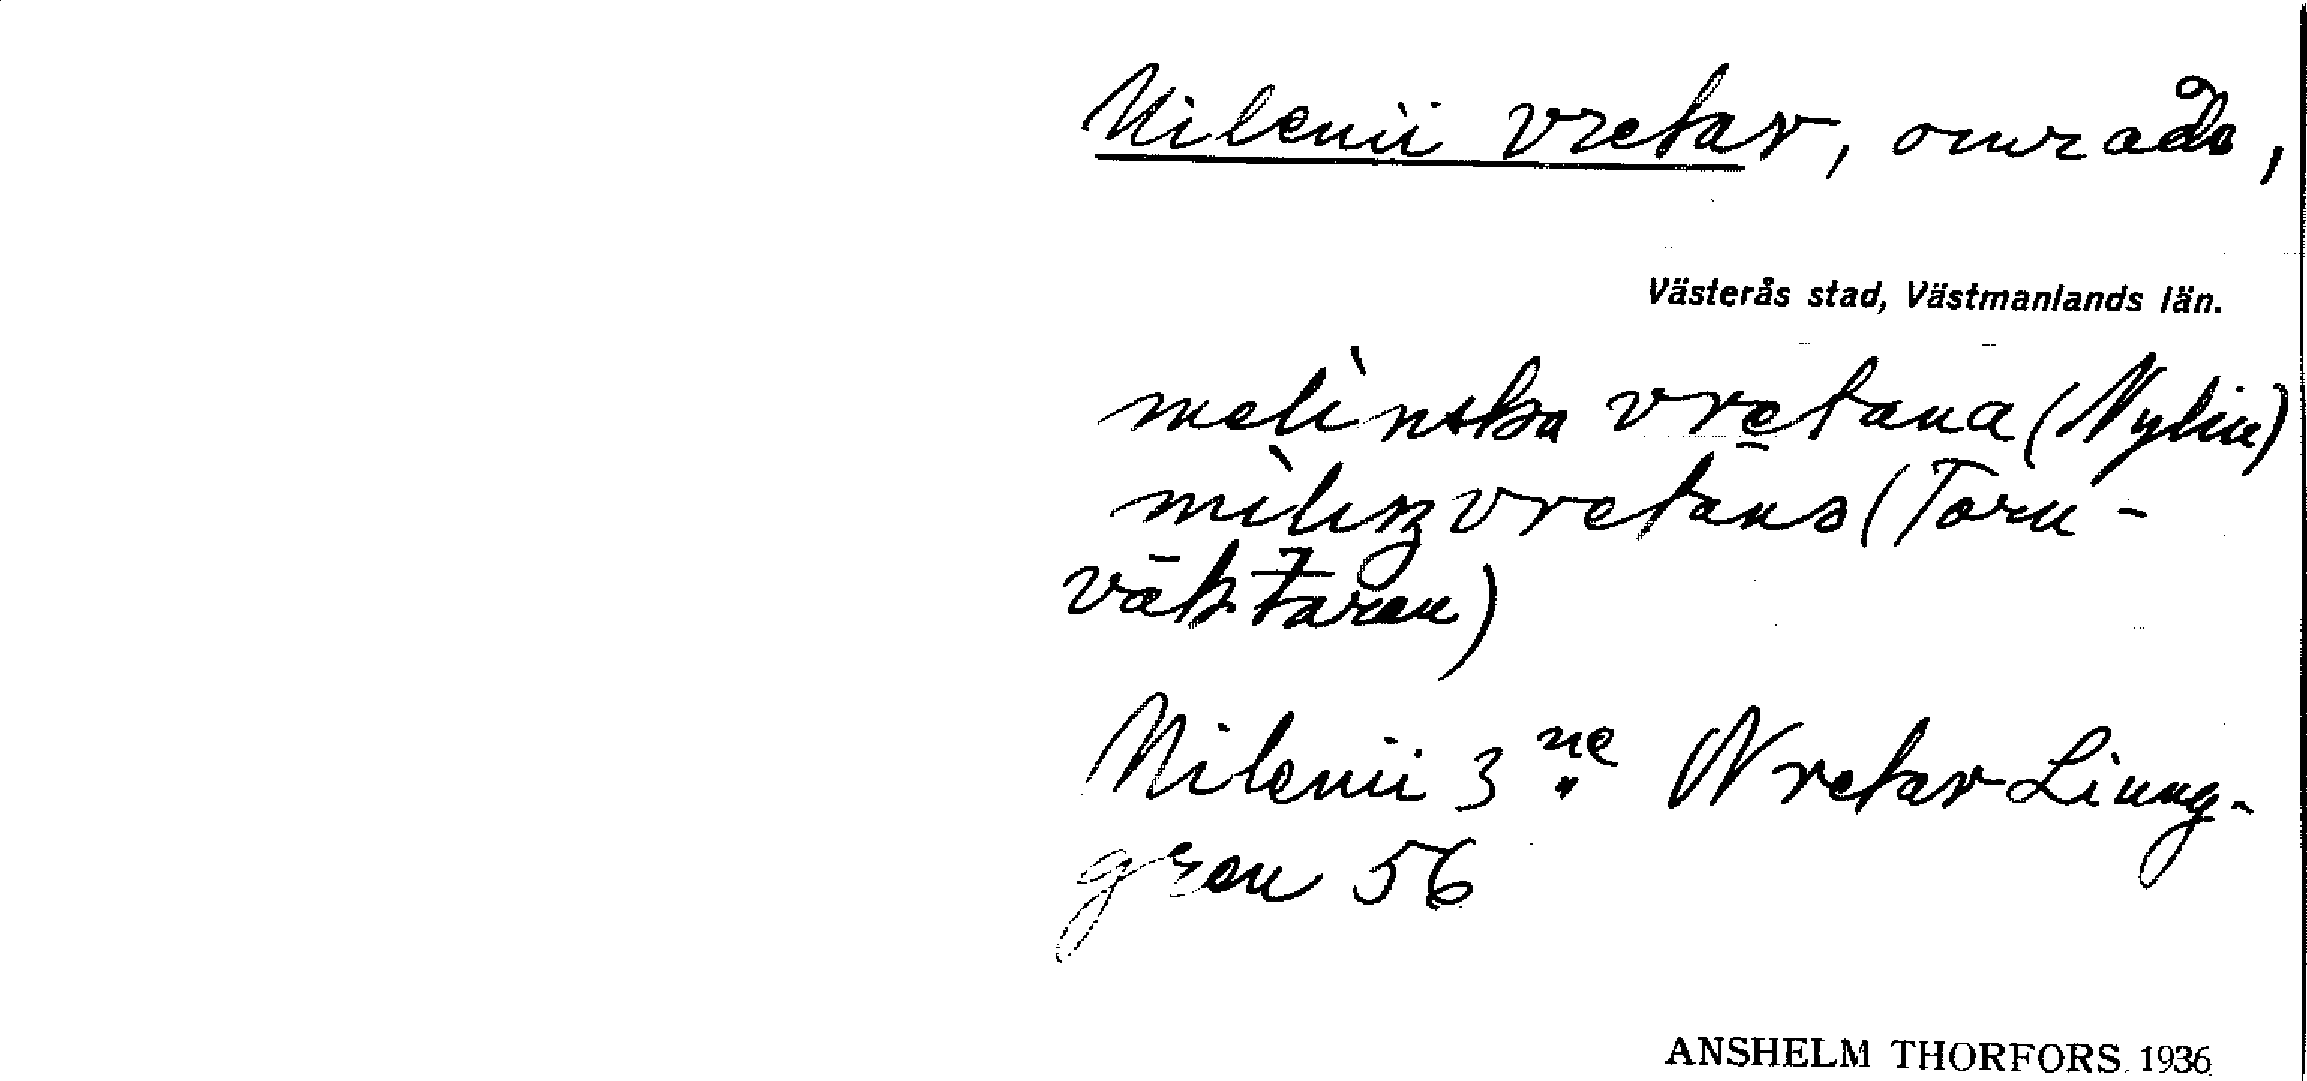 Milenii vretar, område,
Västerås stad, Västmanlands län.
melinska vretana (Nylin)
milinzvretana (Torn-
väktaren)
Milenii 3 ne Wretar Liung-
gren 56
ANSHELM THORFORS 1936